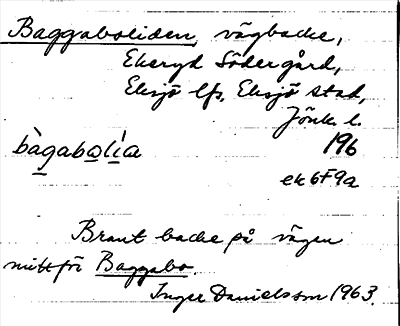 Baggaboliden, vägbacke,
Ekeryd Södergård,
Eksjö lfs, Eksjö stad,
Jönk. l.
bàgabolía 196
ek 6F9a
Brant backe på vägen
mittför Baggabo.
Inger Danielsson 1963.